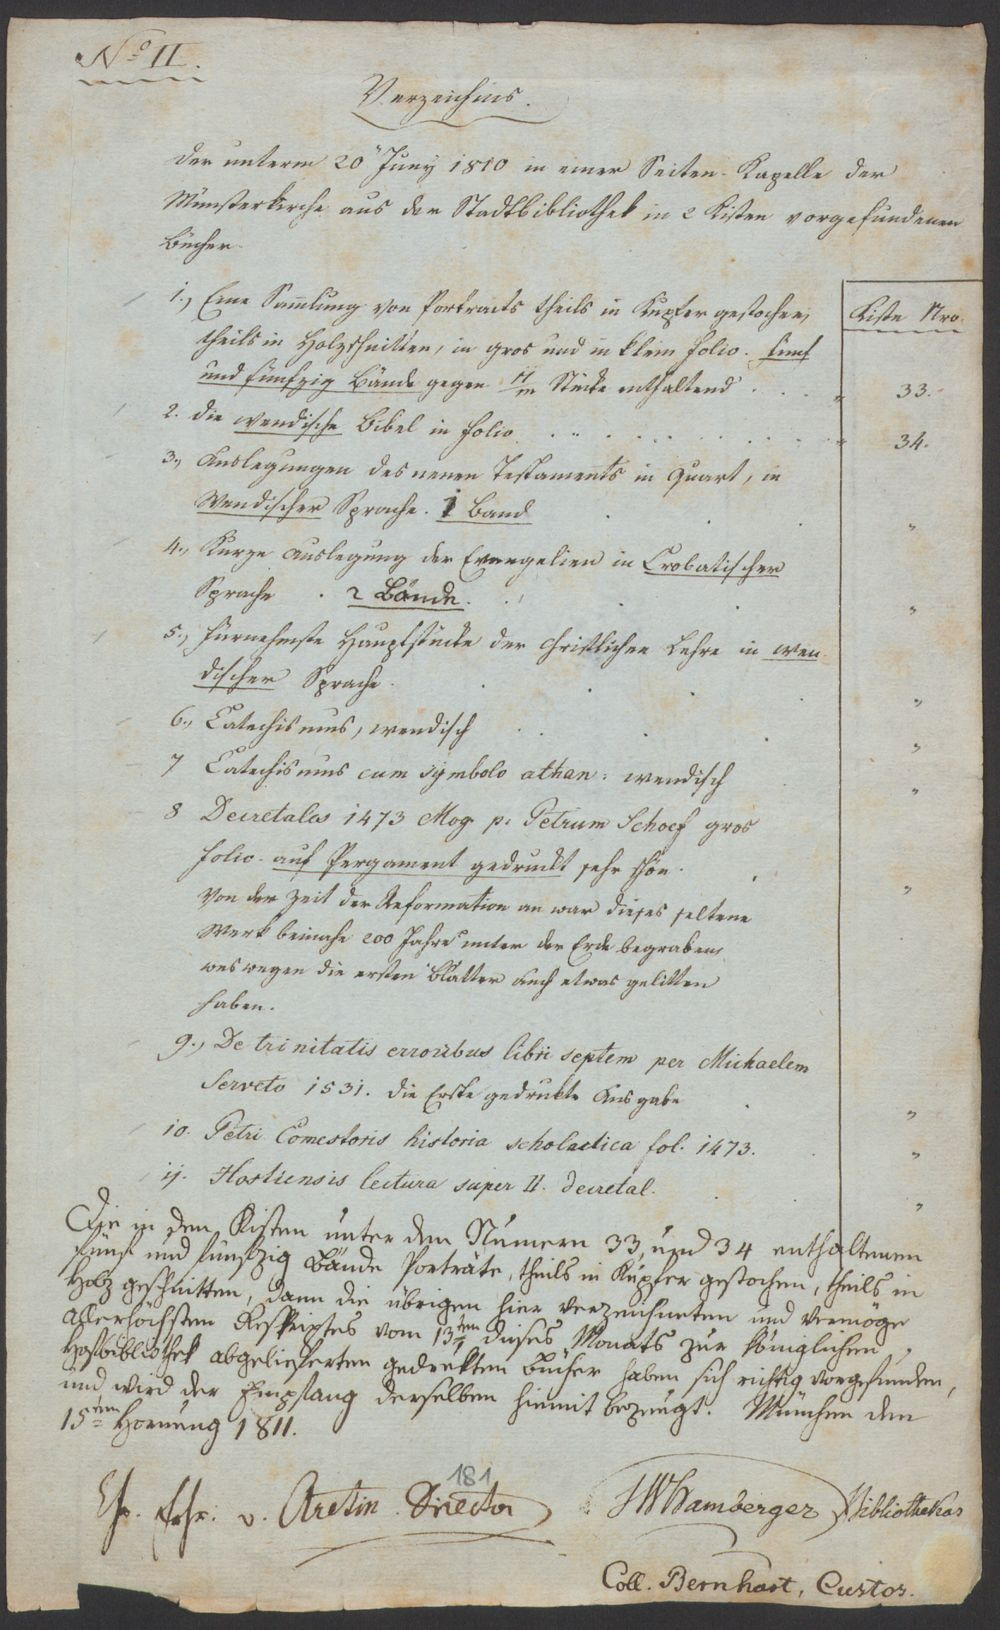 No II.
Verzeichniß.
der unterm 20 Juny 1810 in einer Seiten-Kapelle der
Münsterkirche aus der Stadtbibliothek in 2 Kisten vorgefundenen
Bücher.
Kiste Nro.
1., Eine Sam̄lung von Portraits theils in Kupfer gestochen,
theils in Holzschnitten, in gros und in klein folio. fünf
und fünfzig Bände gegen Stücke enthaltend . . . " 33.
2. die wendische Bibel in folio . . . " 34.
3., Auslegungen des neuen Testaments in Quart, in
Wendischer Sprache. 1 Band . . . "
4., Kurze Auslegung der Evangelien in Crobatischer
Sprache . 2 Bände. . . . "
5., fürnehmste Hauptstücke der christlichen Lehre in wen
discher Sprache. . . . "
6., Catechismus, wendisch . . . "
7 Catechismus cum symbolo athan: wendisch "
8 Decretales 1473 Mog. p. Petrum Schoef gros
folio. auf Pergament gedruckt sehr schön. . "
Von der Zeit der Reformation an war dieses seltene
Werk beinahe 200 Jahre unter der Erde begraben,
weswegen die ersten Blätter auch etwas gelitten
haben.
9., De trinitatis erroribus libri septem per Michaelem
Serveto 1531. die Erste gedrukte Ausgabe . "
10. Petri Comestoris historia scholastica fol. 1473. . "
11. Hostiensis lectura super II. decretal. . "
Die in den Kisten unter den Numern 33, und 34 enthaltenen
fünf und fünfzig Bände Porträte, theils in Kupfer gestochen, theils in
Holz geschnitten, dann die übrigen hier verzeichneten und vermöge
allerhöchsten Reskriptes vom 13ten dieses Monats zur königlichen
Hofbibliothek abgelieferten gedrukten Bücher haben sich richtig vorgefunden,
und wird der Empfang derselben hiemit bezeugt. München den
15ten Hornung 1811.
181
Chr. Frhr. v. Aretin. Director
JWHamberger Bibliothekar
Coll. Bernhart, Custos.